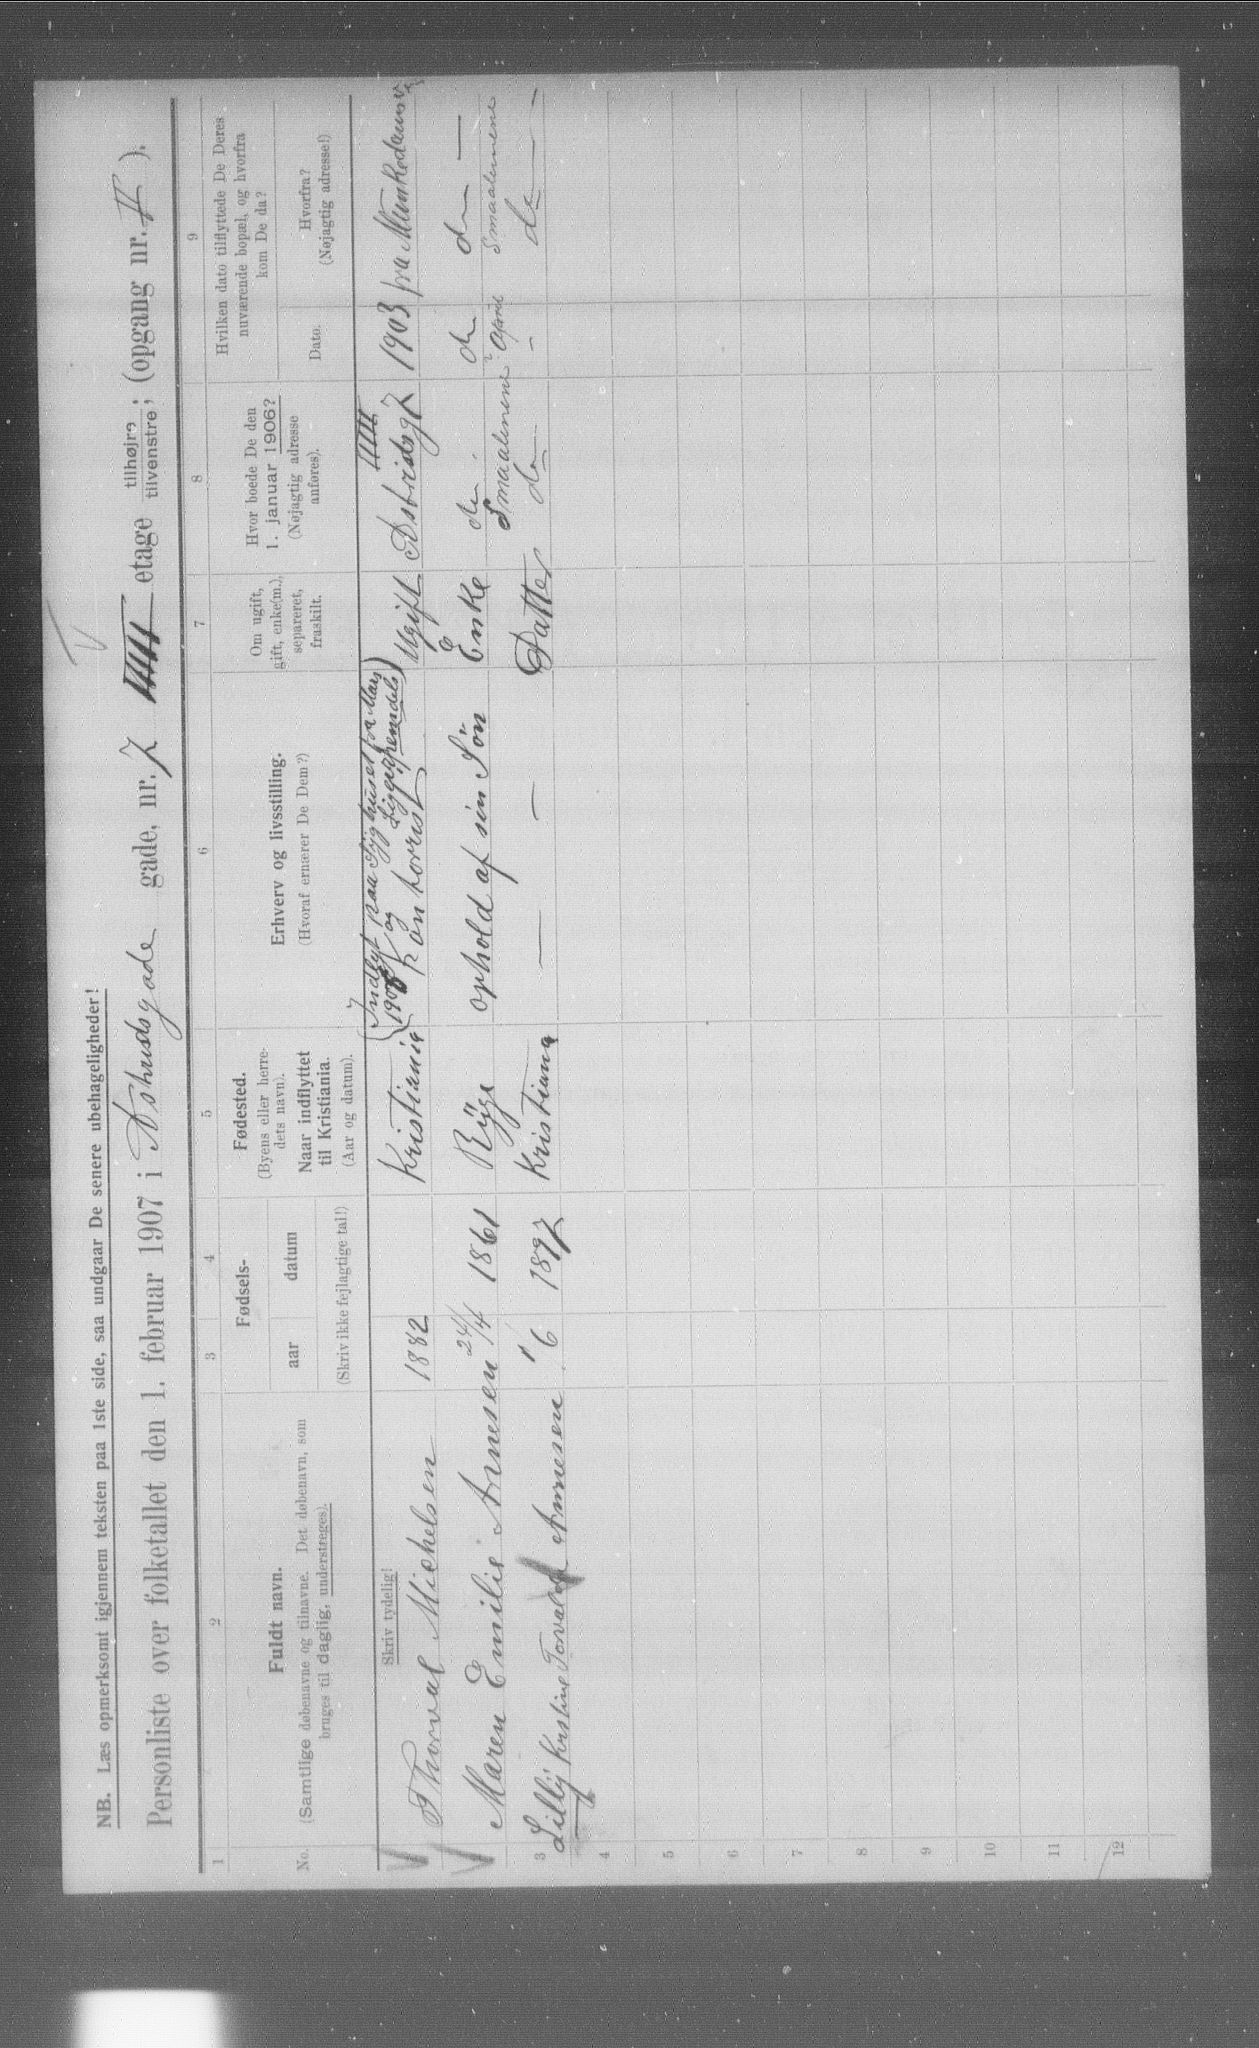 NB. Læs opmerksomt igjennem teksten paa 1ste side, saa undgaar De senere ubehageligheder!
Personliste over folketallet den 1. februar 1907 i Astridsgade gade, nr. 7 IIII etage tilhøjre tilvenstre; (opgang nr. II).
1 2 3 4 5 6 7 8 9
No.
Fuldt navn.
(Samtlige døbenavne og tilnavne. Det døbenavn, som
bruges til daglig, understreges).
Fødsels-
aar datum
(Skriv ikke fejlagtige tal!)
Fødested.
(Byens eller herre-
dets navn).
Naar indflyttet
til Kristiania.
(Aar og datum).
Erhverv og livsstilling.
(Hvoraf ernærer De Dem?)
Om ugift,
gift, enke(m.),
separeret,
fraskilt.
Hvor boede De den
1. januar 1906?
(Nøjagtig adresse
anføres).
Hvilken dato tilflyttede De Deres
nuværende bopæl, og hvorfra
kom De da?
Dato.
Hvorfra?
(Nøjagtig adresse!)
Skriv tydelig!
Indlagt paa Syghuset fra Mars
1906 og
IIII
Thorval Michelsen 1882 Kristiania Kontorist Ugift Astridsg 7 1903 fra
Maren Emilie Arnesen 24/4 1861 Rygge ophold af sin Søn Enke do. do do —
Smaalenene April Smaalenene
3 Lilly Kristine Torvalda Arnesen 1/6 1897 Kristiania — — Datter do - do —
4
5
6
7
8
9
10
11
12